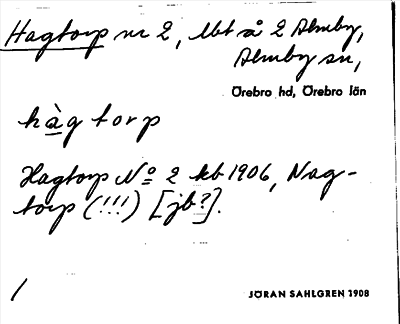 Hagtorp nr 2, lht å 2 Almby,
Almby sn,
Örebro hd, Örebro län
hàg torp
Hagtorp No 2 kb 1906, Nag-
torp (!!!) [jb?].
/
JÖRAN SAHLGREN 1908